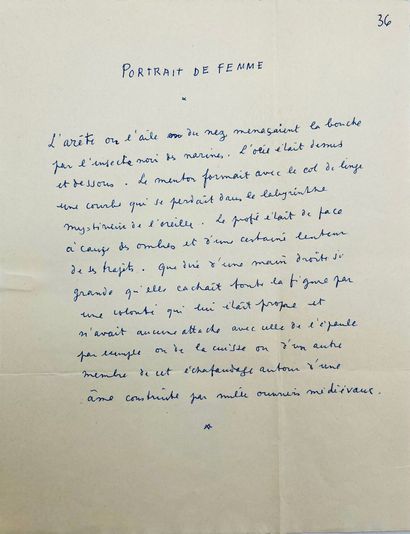 36
PORTRAIT DE FEMME
*
L'arête ou l'aile du nez menaçaient la bouche
par l'insecte noir des narines. L'œil était dessus
et dessous. Le menton formait avec le col de linge
une courbe qui se perdait dans le labyrinthe
mystérieux de l'oreille. Le profil était de face
à cause des ombres et d'une certaine lenteur
de ses trajets. Que dire d'une main droite si
grande qu'elle cachait toute la figure par
une volonté qui lui était propre et
n'avait aucune attache avec celle de l'épaule
par exemple ou de la cuisse ou d'un autre
membre de cet échafaudage autour d'une
âme construite par mille ouvriers médiévaux.
*